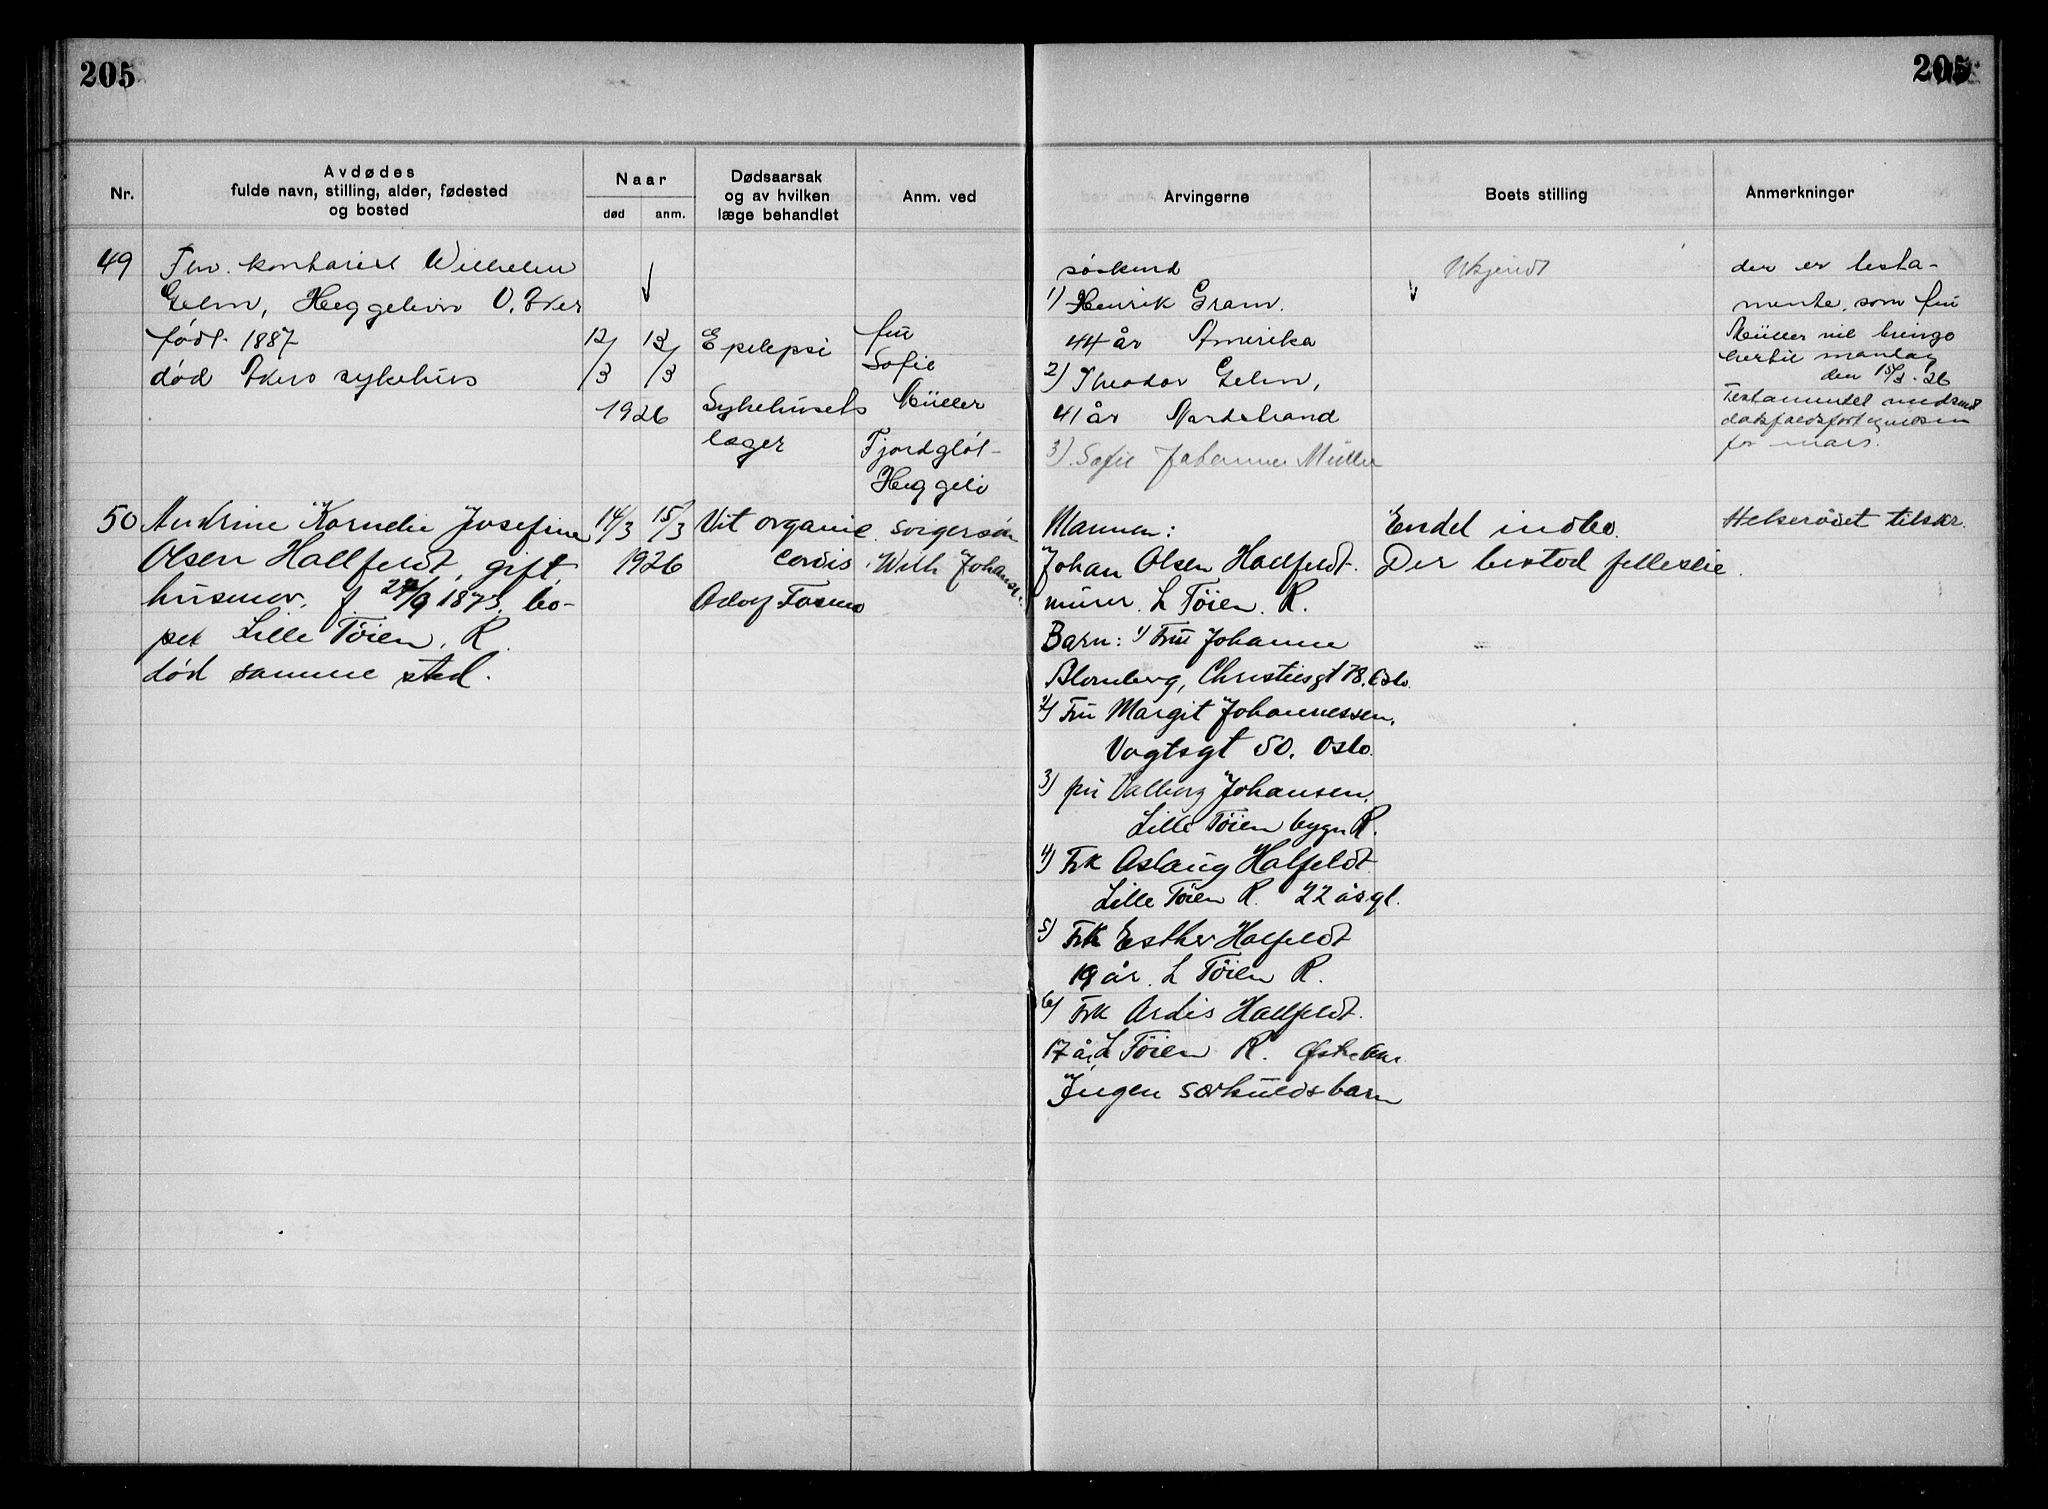 205
205
Nr.
Avdødes
fulde navn, stilling, alder, fødested
og bosted
Naar
død
anm.
Dødsaarsak
og av hvilken
læge behandlet
Anm. ved
Arvingerne
Boets stilling
Anmerkninger
49
Fhv. kontorist Wilhelm
Gelm, Heggelivn V. Aker
født 1887
død Akers sykehus
12/3
13/3
1926
Epilepsi
Sykehusets
læger
fru
Sofie
Müller
Fjordgløt-
Heggeli
søskend
1) Henrik Gram.
44 år Amerika
2) Theodor Gelm,
41 år Nordstrand
3). Sofie Johanne Müller
Ukjendt
der er testa-
mente, som fru
Müller vil bringe
hertil mandag
den 15/3. 26
Testamentet medsendt
dødsfaldsfortegnelsen
for mars.
50
Andrine Kornelie Josefine
Olsen Hallfeldt, gift,
husmor. f. 27/9 1873, bo-
pel Lille Tøien, R.
død samme sted.
14/3
15/3
1926
Vit. organic.
cordis
Adolf
svigersøn
Wilh Johansen
Mannen:
Johan Olsen Hallfeldt.
murer. L Tøien. R.
Barn: 1) Fru Johanne
Blomberg, Christiesgt 78. Oslo.
2) Fru Margit Johannessen,
Vogtsgt 50. Oslo.
3) fru Valborg Johansen,
Lille Tøien bygn R.
4) Frk Aslaug Halfeldt
Lille Tøien R. 22 år gl.
5) Frk Esther Halfeldt
19 år. L Tøien R.
6) Frk Ardis Hallfeldt.
17 år, L Tøien R. Østre Aker
Ingen særkuldsbarn
Endel indbo.
Der bestod felleseie.
Helserådet tilskr.